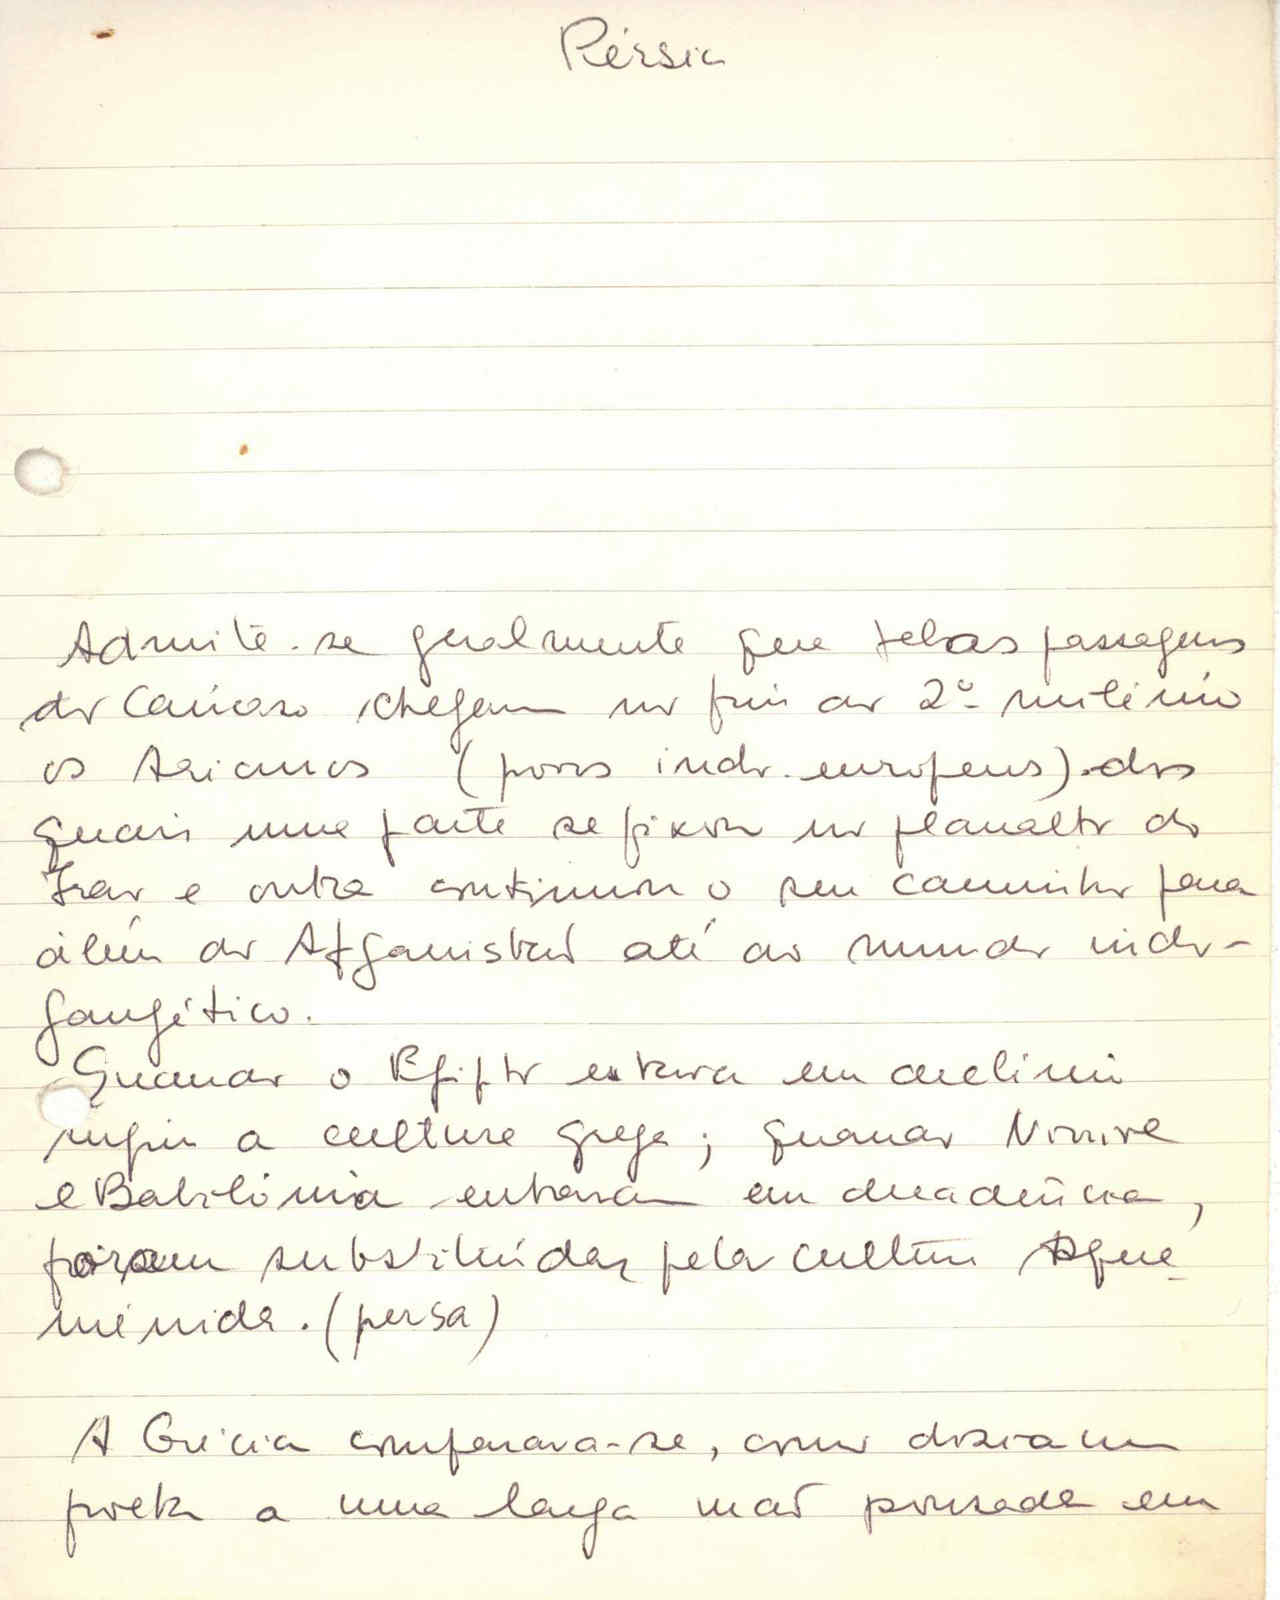 Pérsia
Admite-se geralmente que pelas passagens
do Caúcaso chegam no fim do 2º milénio
os Arianos (povos indo-europeus) dos
quais uma parte se fixou no planalto do
Irão e outra continuou o seu caminho para
além do Afganistão até ao mundo indo-
gangético.
Quando o Egipto estava em declínio
surgiu a cultura grega; quando Ninive
e Babilónia entraram em decadência,
foram substituídas pela cultura Aque-
ménida. (persa)
A Grécia comparava-se, como dizia um
poeta a uma larga mão pousada em